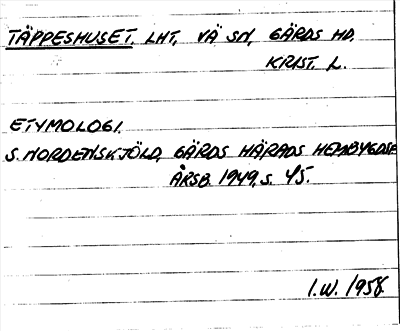 TÄPPESHUSET. LHT, VÄ SN, GÄRDS HD.
KRIST. L.
ETYMOLOGI.
S. NORDENSKJÖLD, GÄRDS HÄRADS HEMBYGDSF
ÅRSB. 1949, S. 45.
I.W. 1958